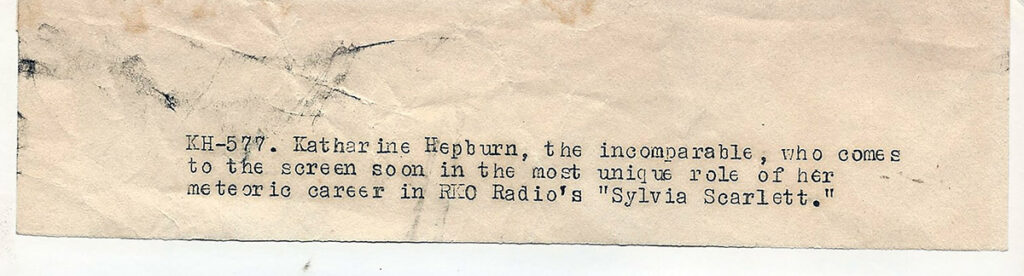 KH-577. Katharine Hepburn, the incomparable, who comes
to the screen soon in the most unique role of her
meteoric career in RKO Radio's "Sylvia Scarlett."